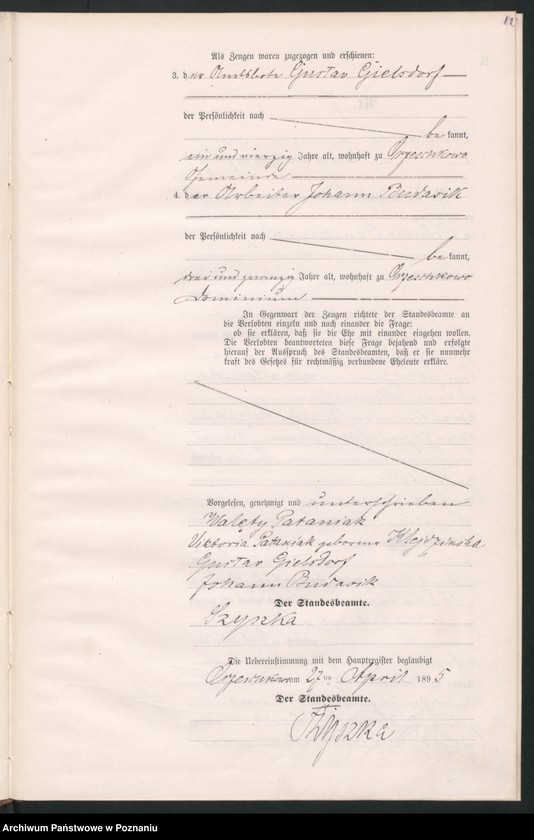 12
Als Zeugen waren zugezogen und erschienen:
3. der Amtsbote Gustav Gielsdorf
der Persönlichkeit nach
bekannt,
ein und vierzig Jahre alt, wohnhaft zu Orzeschkowo
Gemeinde
4. der Arbeiter Johann Budasik
der Persönlichkeit nach
bekannt,
drei und zwanzig Jahre alt, wohnhaft zu Orzeschkowo
Dominium
In Gegenwart der Zeugen richtete der Standesbeamte an
die Verlobten einzeln und nach einander die Frage:
ob sie erklären, daß sie die Ehe mit einander eingehen wollen.
Die Verlobten beantworteten diese Frage bejahend und erfolgte
hierauf der Ausspruch des Standesbeamten, daß er sie nunmehr
kraft des Gesetzes für rechtmäßig verbundene Eheleute erkläre.
Vorgelesen, genehmigt und unterschrieben
Walęty Pataniak
Viktoria Pataniak geborene Klejdzinska
Gustav Gielsdorf
Johann Budasik
Der Standesbeamte.
Szyszka
Die Uebereinstimmung mit dem Hauptregister beglaubigt
Orzeschkowo am 27 ten April 1895
Der Standesbeamte.
Szyszka
Archiwum Państwowe w Poznaniu